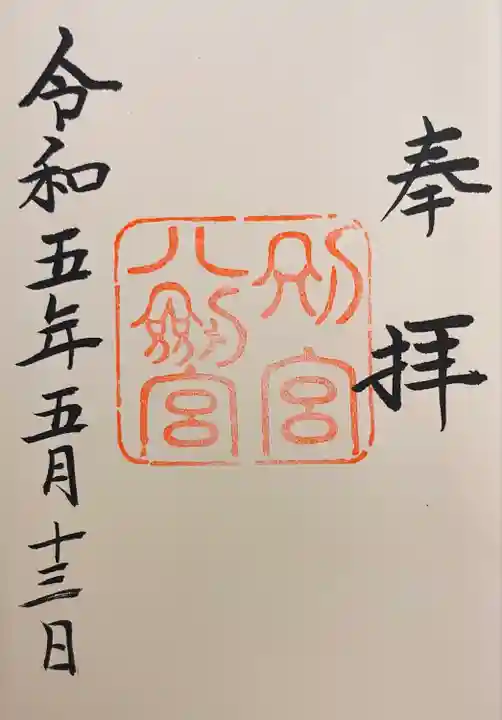 奉拝
別宮
八剱宮
令和五年五月十三日